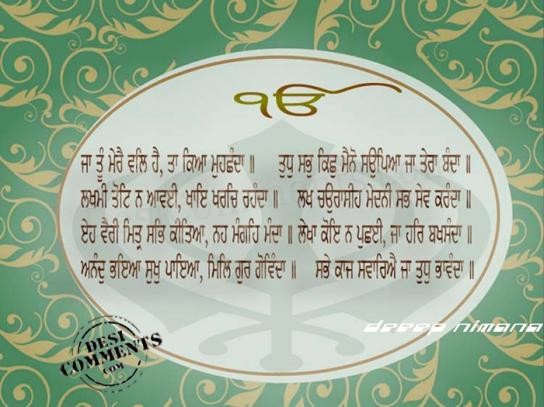 ੴ
ਜਾ ਤੂੰ ਮੇਰੈ ਵਲਿ ਹੈ, ਤਾ ਕਿਆ ਮੁਹਛੰਦਾ ॥ ਤੁਧੁ ਸਭੁ ਕਿਛੁ ਮੈਨੋ ਸਉਪਿਆ ਜਾ ਤੇਰਾ ਬੰਦਾ ॥
ਲਖਮੀ ਤੋਟਿ ਨ ਆਵਈ, ਖਾਇ ਖਰਚਿ ਰਹੰਦਾ ॥ ਲਖ ਚਉਰਾਸੀਹ ਮੇਦਨੀ ਸਭ ਸੇਵ ਕਰੰਦਾ ॥
ਏਹ ਵੈਰੀ ਮਿਤ੍ਰ ਸਭਿ ਕੀਤਿਆ, ਨਹ ਮੰਗਹਿ ਮੰਦਾ ॥ ਲੇਖਾ ਕੋਇ ਨ ਪੁਛਈ, ਜਾ ਹਰਿ ਬਖਸੰਦਾ ॥
ਅਨੰਦੁ ਭਇਆ ਸੁਖੁ ਪਾਇਆ, ਮਿਲਿ ਗੁਰ ਗੋਵਿੰਦਾ ॥ ਸਭੇ ਕਾਜ ਸਵਾਰਿਐ ਜਾ ਤੁਧੁ ਭਾਵੰਦਾ ॥
deeep nimana
DESI
COMMENTS
.COM